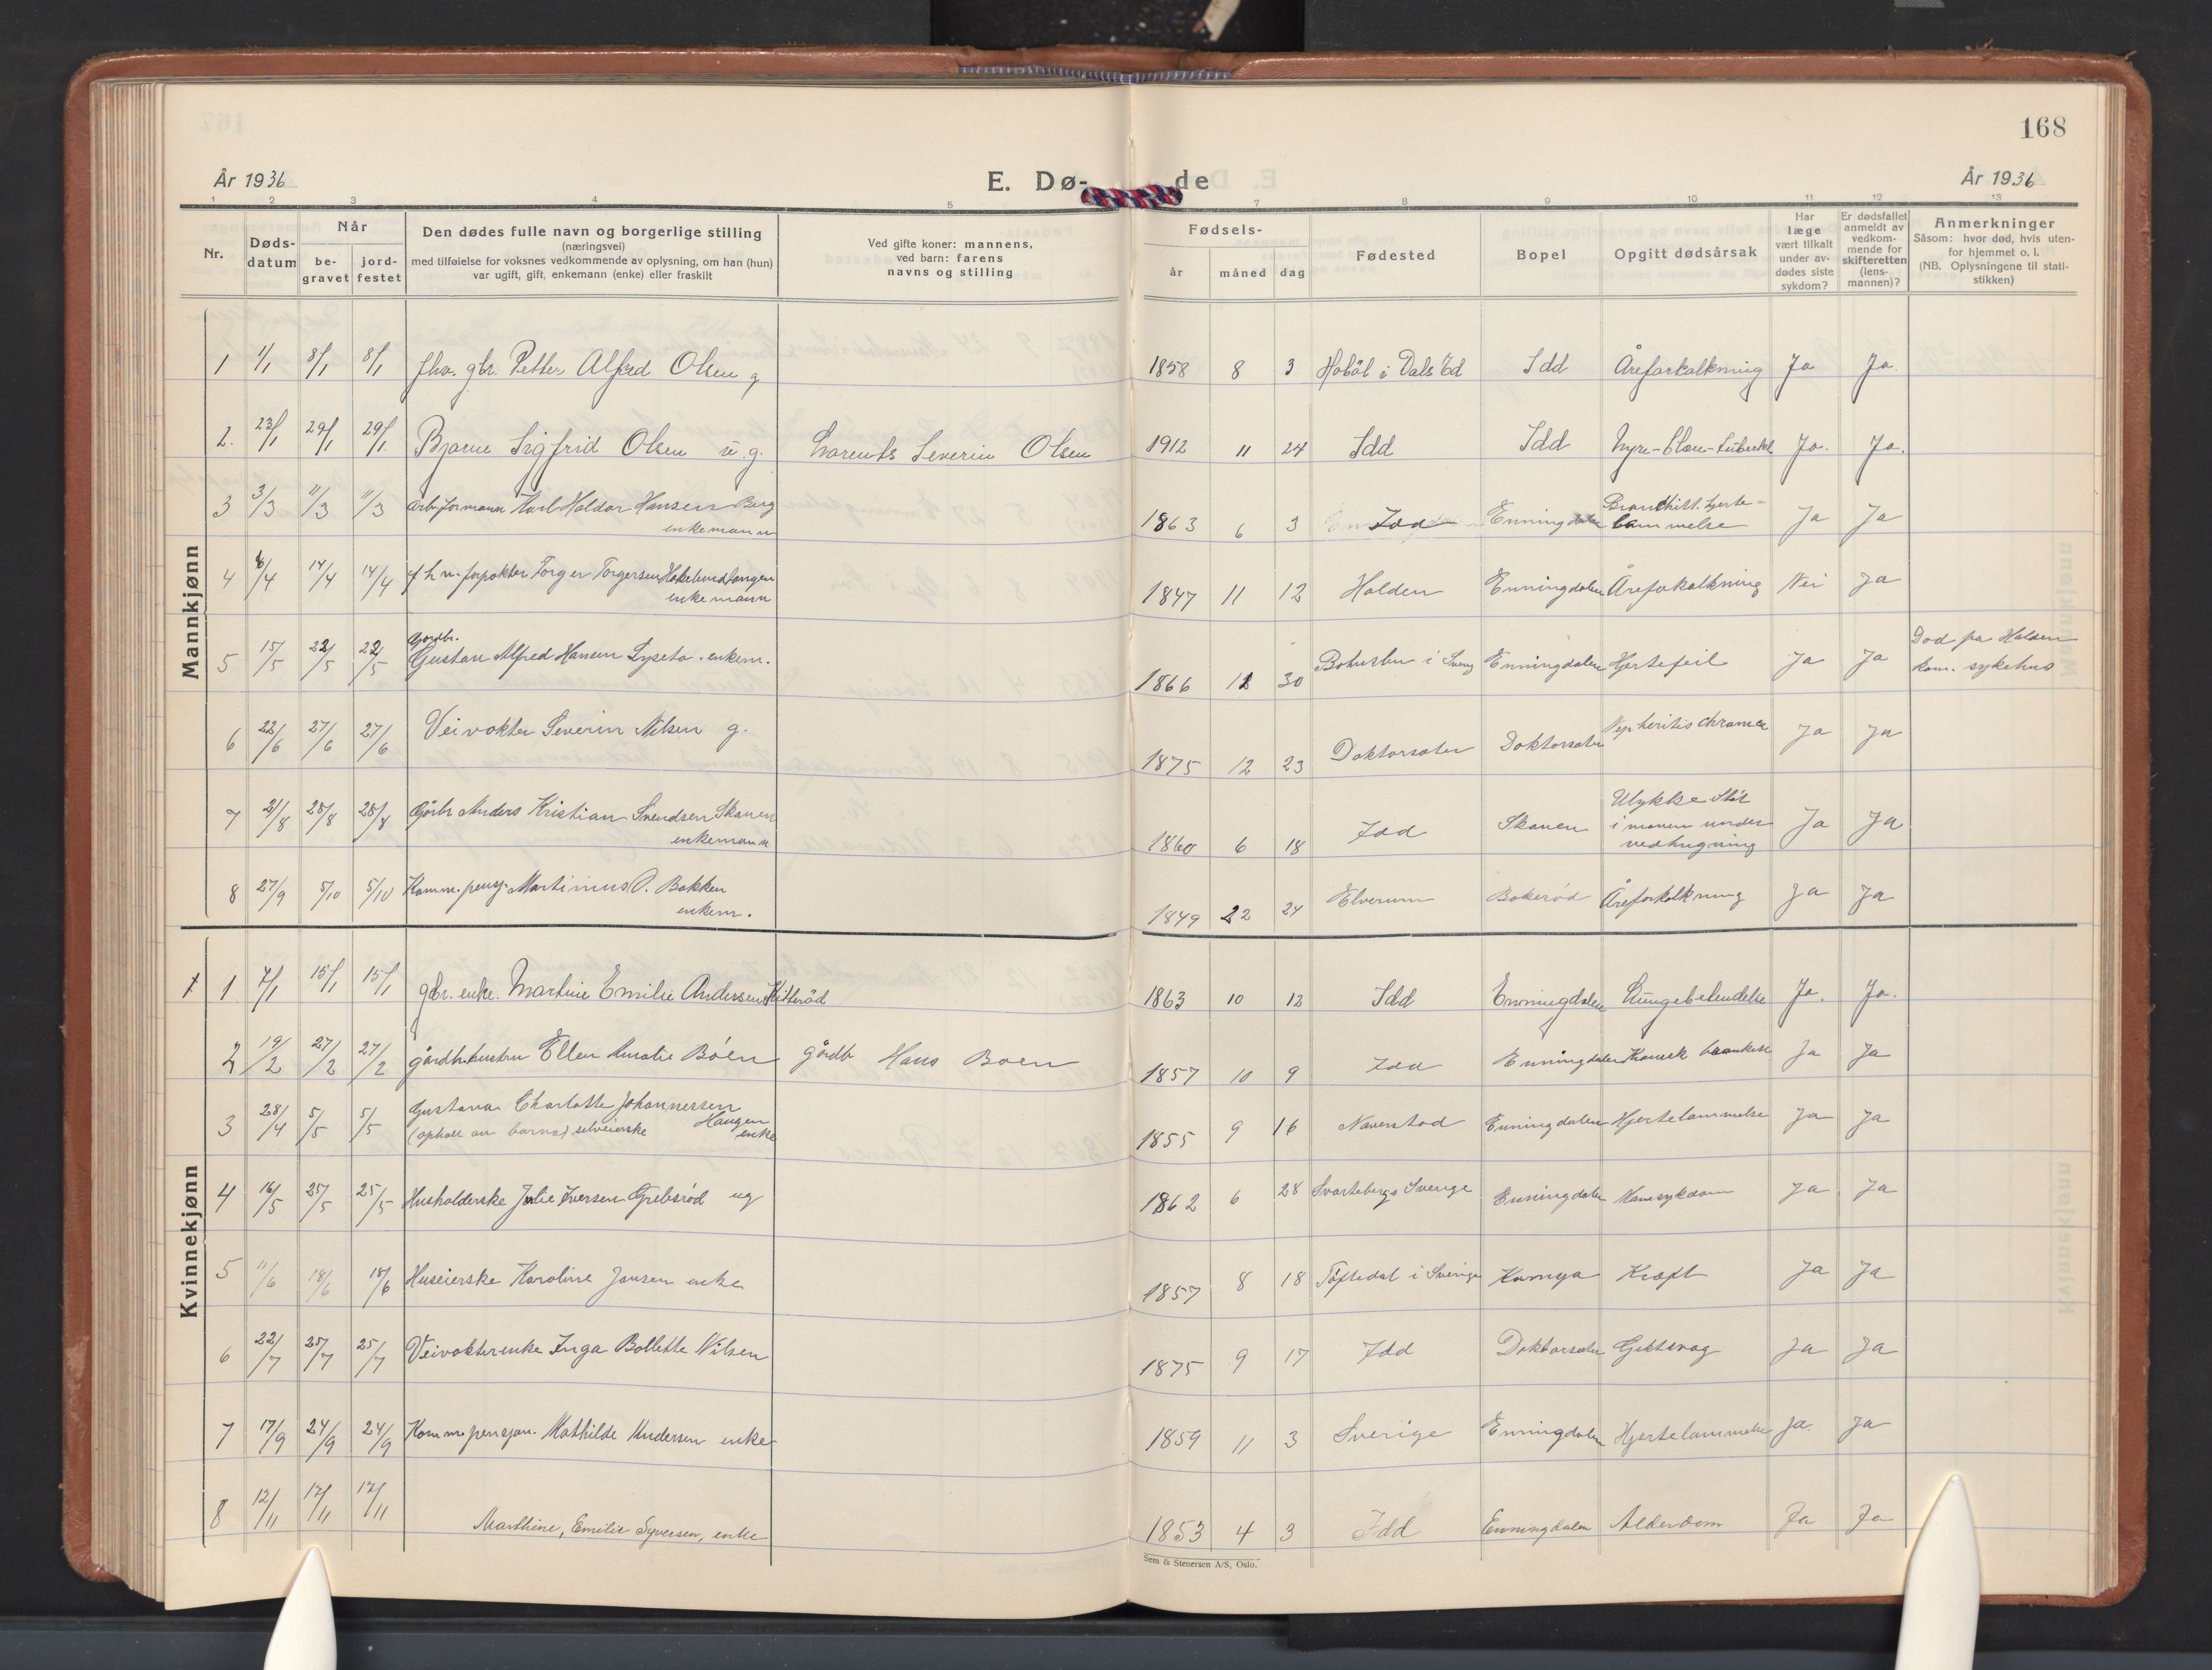 168
År 1936
E. Dø-
de
År 1936
1 2 3 4 5 7 8 9 10 11 12 13
Nr.
Døds-
datum
Når
be-
gravet
jord-
festet
Den dødes fulle navn og borgerlige stilling
(næringsvei)
med tilføielse for voksnes vedkommende av oplysning, om han (hun)
var ugift, gift, enkemann (enke) eller fraskilt
Ved gifte koner: mannens,
ved barn: farens
navns og stilling
Fødsels-
år måned dag
Fødested
Bopel
Opgitt dødsårsak
Har
læge
vært tilkalt
under av-
dødes siste
sykdom?
Er dødsfallet
anmeldt av
vedkom-
mende for
skifteretten
(lens-
mannen)?
Anmerkninger
Såsom: hvor død, hvis uten-
for hjemmet o. l.
(NB. Oplysningene til stati-
stikken)
Mannkjønn
1 1/1 8/1 8/1 fhv. gbr. Petter Alfred Olsen g 1858 8 3 Höböl i Dals Ed Idd Åreforkalkning Ja Ja.
2. 23/1 29/1 29/1. Bjarne Sigfrid Olsen u.g. Lorents Severin Olsen 1912 11 24 Idd Idd Nyre-Blære-Tuberkl Ja. Ja.
3 3/3 11/3 11/3 Arb.formann Karl Haldor Hansen Berg
enkemann 1863 6 3 Idd Enningdalen Bronchitt. Hjerte-
lammelse Ja Ja
4 6/4 14/4 14/4 fhv. forpakter Torger Torgersen Hakelundlangen
enkemann 1847 11 12 Halden Enningdalen Åreforkalkning Nei Ja
5 15/5 22/5 22/5 Gårdbr.
Gustav Alfred Hansen Lyseto. enkem. 1866 12 30 Bohuslen i Sverig Enningdalen Hjertefeil Ja Ja Død på Halden
kom. sykehus
6 22/6 27/6 27/6 Veivokter Severin Nilsen g. 1875 12 23 Doktorsæter Doktorsæter Nephritis chronica Ja Ja
7 21/8 25/8 25/8 Gårbr Anders Kristian Svendsen Skauen
enkemann 1860 6 18 Idd Skauen Ulykke Støt
i maven under
vedhugning Ja Ja
8 27/9 5/10 5/10 Komm. pensj. Martinius O. Bakken
enkem. 1849 22 24 Elverum Bokerød Åreforkalkning Ja Ja
Kvinnekjønn
1 7/1 15/1 15/1 gbr. enke. Martine Emilie Andersen Kitterød 1863 10 12 Idd Enningdalen Lungebetendelse Ja. Ja.
2 19/2 27/2 27/2 gårdbr.hustru Ellen Amalie Böen gårdb Hans Boen 1857 10 9 Idd Enningdalen Kronisk bronkitt Ja Ja
3 28/4 5/5 5/5 Gustava Charlotte Johannersen
Haugen
(ophold av barna) selveierske enke 1855 9 16 Naverstad Enningdalen Hjertelammelse Ja Ja
4 16/5 25/5 25/5 Husholderske Julie Iversen Grebsrød ug 1862 6 28 Svarteborgs Sverige Enningdalen Mavesykdom Ja Ja
5 11/6 18/6 18/6 Huseierske Karoline Jansen enke 1857 8 18 Töftedal i Sverige Kornya Kræft Ja Ja
6 22/7 25/7 25/7 Veivokterenke Inga Bollette Nilsen 1875 9 17 Idd Doktorsæter Ja Ja
7 17/9 24/9 24/9 Komm.pensjon. Mathilde Andersen enke 1859 11 3 Sverige Enningdalen Hjertelammelse Ja. Ja
8 12/11 17/11 17/11 Marthine, Emilie Syversen, enke 1853 4 3 Idd Enningdalen Alderdom Ja Ja
Sem & Stenersen A/S, Oslo.